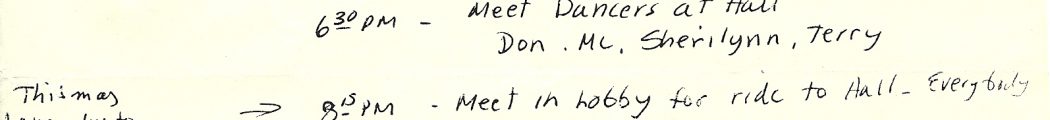 6 30 PM - Meet Dancers at Hall
Don . MC, Sherilynn, Terry
This may → 8 15 PM - Meet in hobby for ride to Hall - Everybody